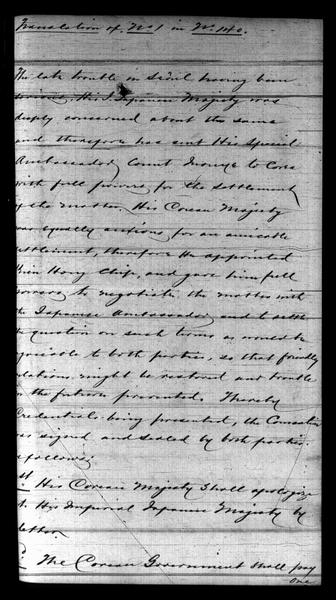 Translation of No 1 in No 140.
The late trouble in Seoul having been
serious, His I. Japanese Majesty was
deeply concerned about the same
and therefore has sent His Special
Ambassador, Count Inouye to Corea
with full powers for the settlement
of the matter. His Corean Majesty
was equally anxious for an amicable
settlement, therefore He appointed
Kim Hong Chip, and gave him full
powers to negotiate the matter with
the Japanese Ambassador and to settle
the question on such terms as would be
agreeable to both parties, so that friendly
relations might be restored and trouble
in the future prevented. Thereby
Credentials being presented, the Convention
was signed and sealed by both parties
as follows:
1st His Corean Majesty shall apologize
to His Imperial Japanese Majesty by
letter.
The Corean Government shall pay
one